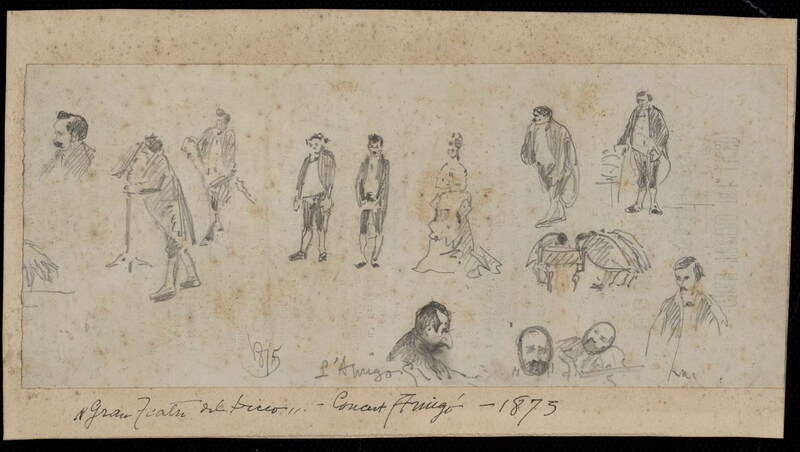 1875
L'Amigó
"Gran Teatre del Liceo„. - Concert Amigó - 1875